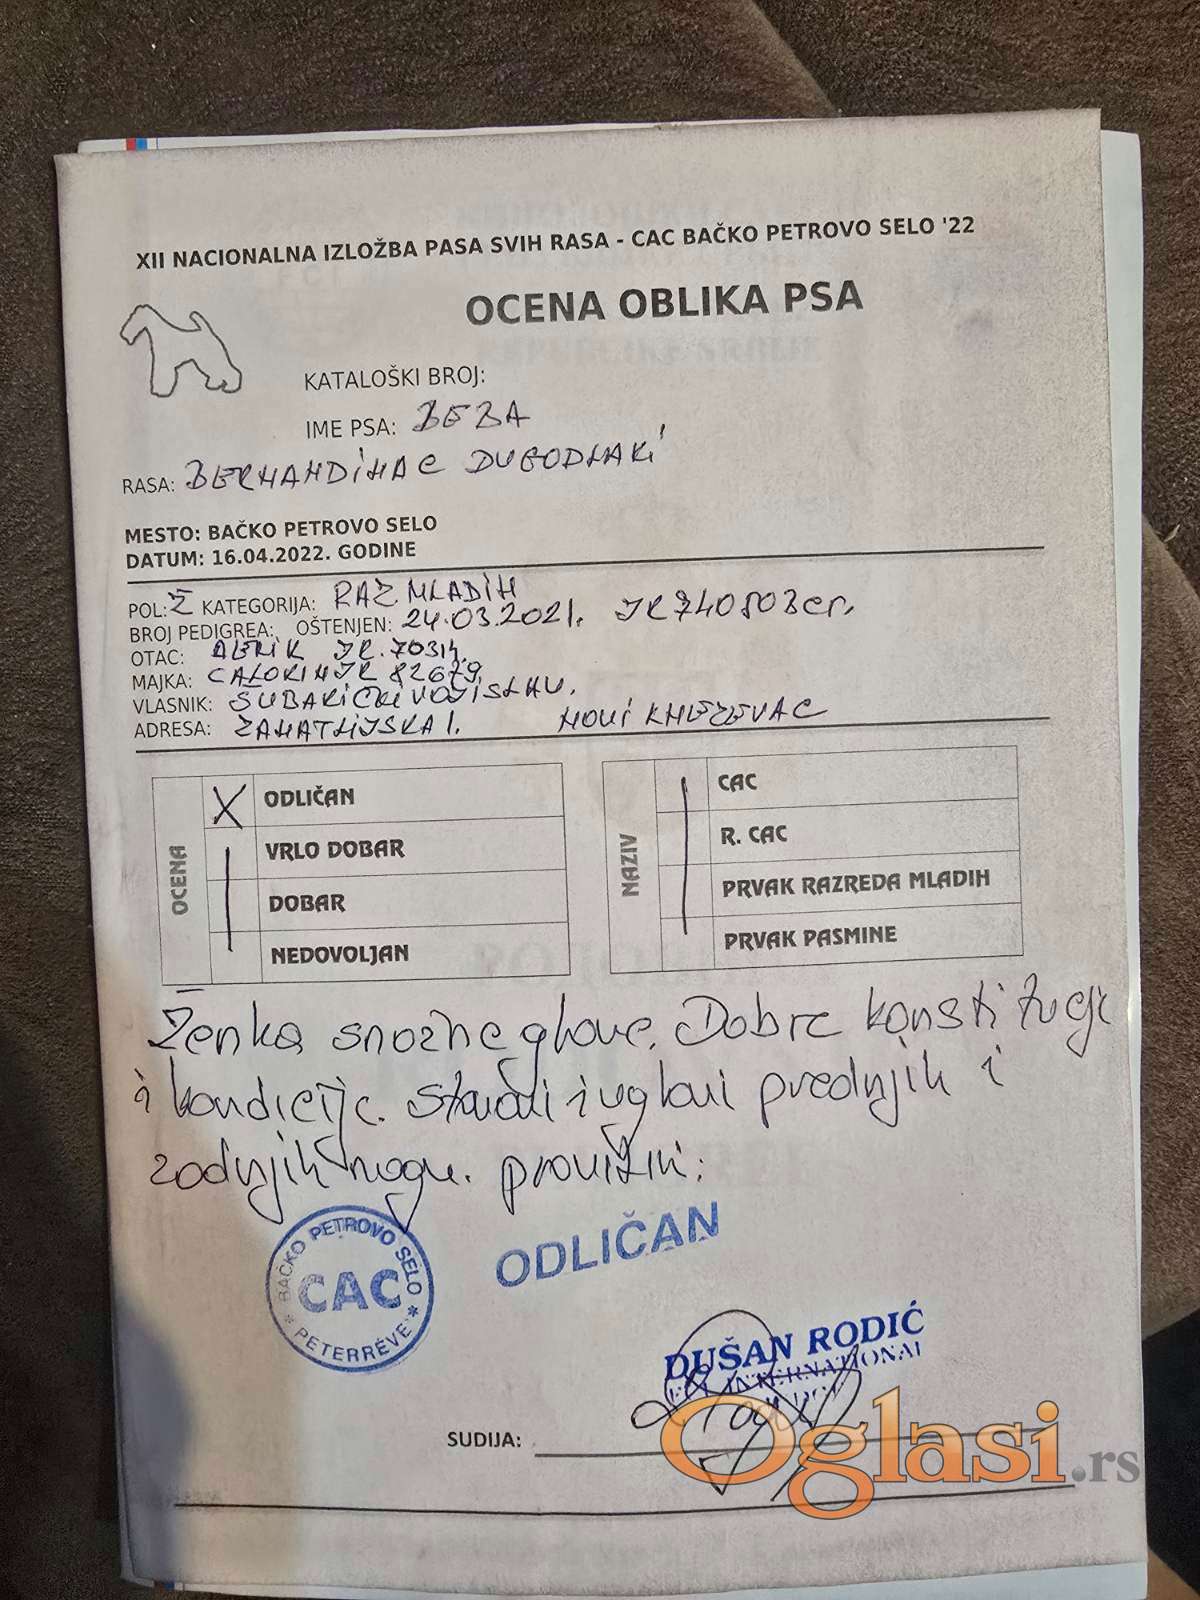 XII NACIONALNA IZLOŽBA PASA SVIH RASA - CAC BAČKO PETROVO SELO '22
OCENA OBLIKA PSA
KATALOŠKI BROJ:
IME PSA: BEBA
RASA: BERNANDINAC DUGODLAKI
MESTO: BAČKO PETROVO SELO
DATUM: 16.04.2022. GODINE
POL: Ž KATEGORIJA: RAZ MLADIH
BROJ PEDIGREA: OŠTENJEN: 24.03.2021. JR 740503 cr.
OTAC: JR. 70314
MAJKA: JR 82679
VLASNIK: VOJISLAV.
ADRESA: 1. NOVI KNEŽEVAC
OCENA
X ODLIČAN
VRLO DOBAR
DOBAR
NEDOVOLJAN
NAZIV
CAC
R. CAC
PRVAK RAZREDA MLADIH
PRVAK PASMINE
Ženka snažne glave. Dobre konstitucije
i kondicije. i uglovi prednjih i
zadnjih nogu. pravilni.
BAČKO PETROVO SELO
CAC
* PETERRÉVE *
ODLIČAN
DUŠAN RODIĆ
FCI INTERNATIONAL
JUDGE
SUDIJA:
Oglasi.rs